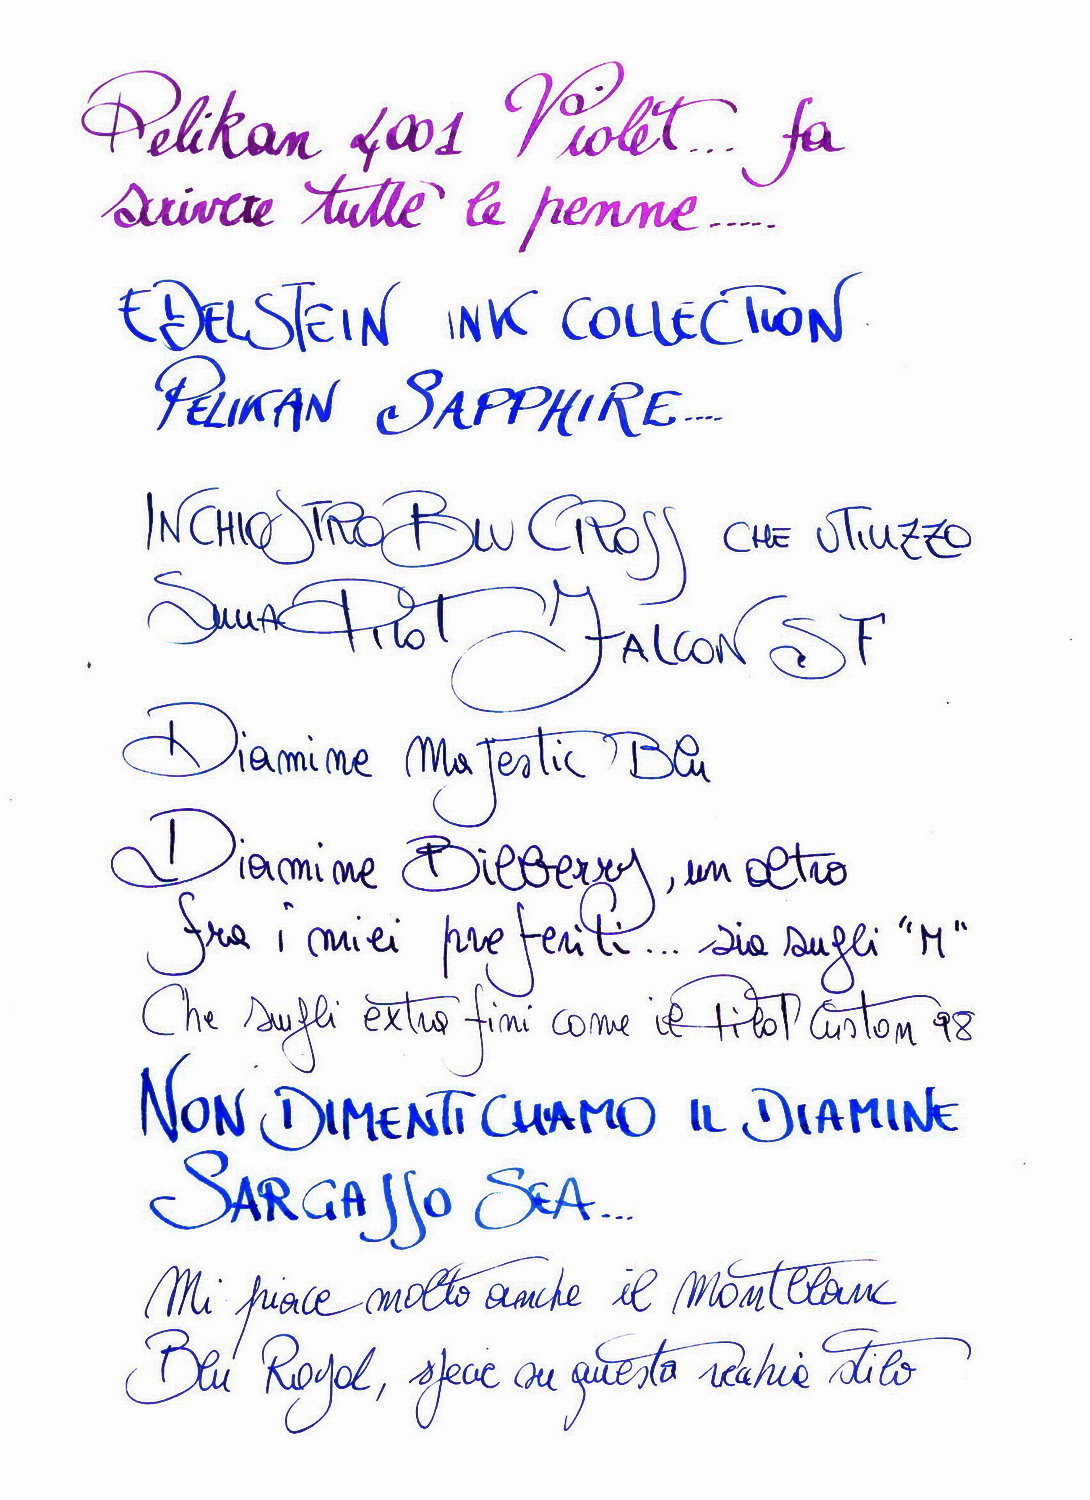 Pelikan 4001 Violet... fa
scrivere tutte le penne.....
EDELSTEIN INK COLLECTION
PELIKAN SAPPHIRE....
INCHIOSTRO BLU CROSS CHE UTILIZZO
SULLA PILOT FALCON SF
Diamine Majestic Blu
Diamine Bilberry, un altro
fra i miei preferiti... sia sugli "M"
Che sugli extra fini come il Pilot Custom 98
NON DIMENTICHIAMO IL DIAMINE
SARGASSO SEA...
Mi piace molto anche il Montblanc
Blu Royal, specie su questa vecchia stilo